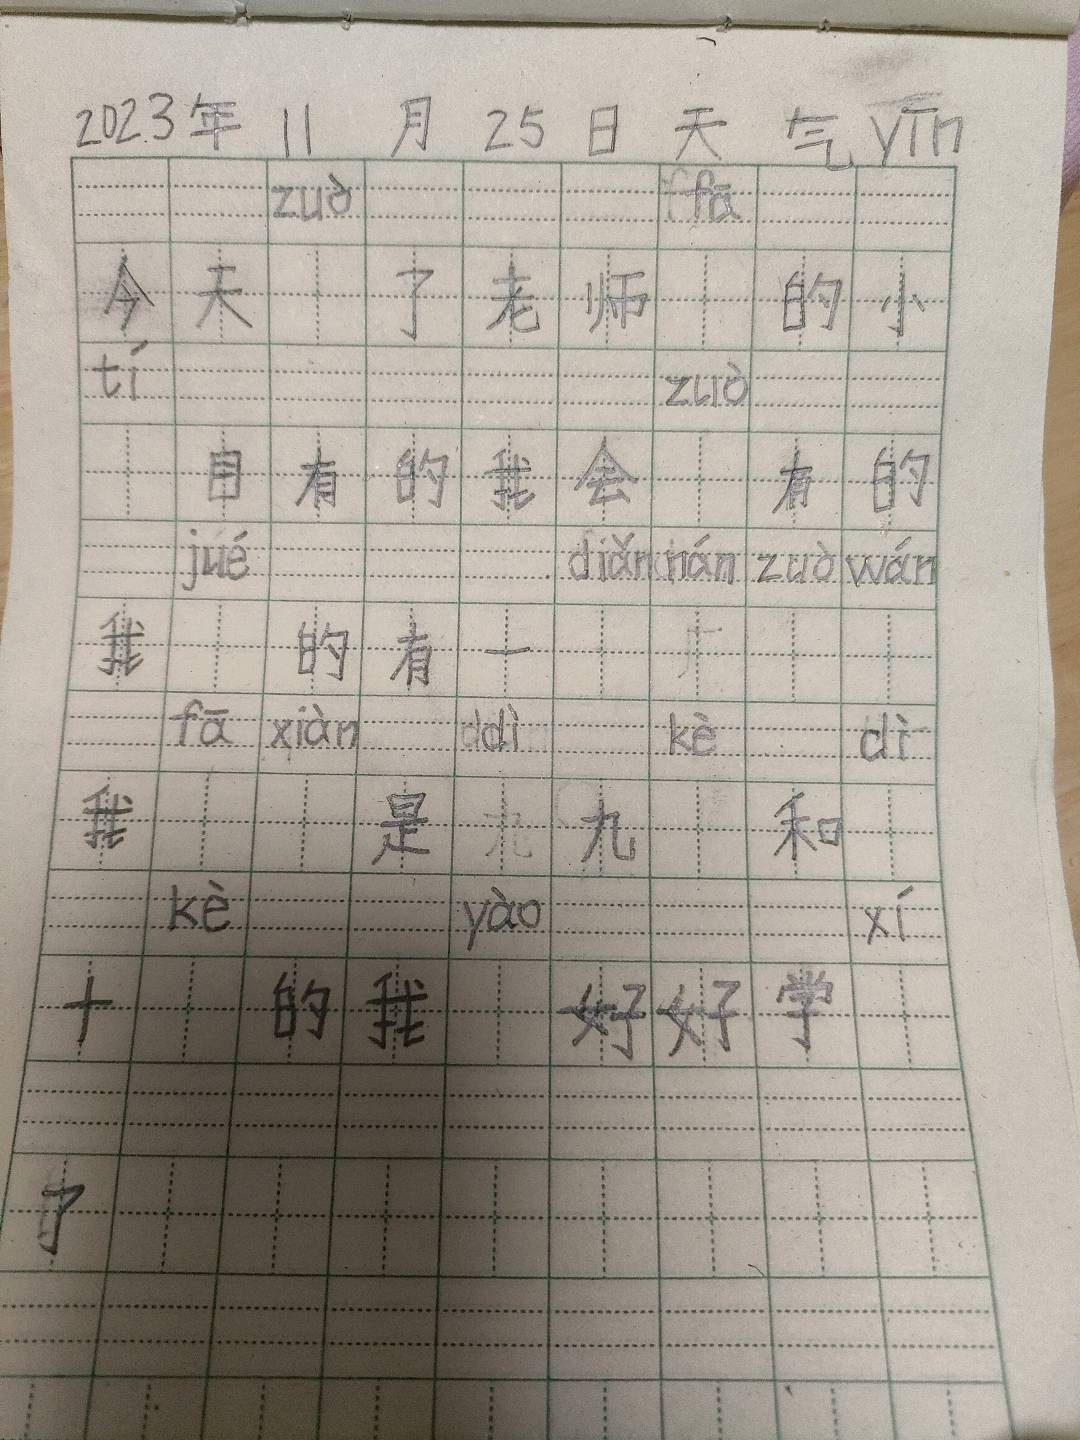 2023年11月25日天气yīn
zuò fā
今天了老师的小
tí zuò
自有的我会有的
jué diǎn nán zuò wán
我的有一
fā xiàn dì kè dì
我是九和
kè yào xí
十的我好好学
了